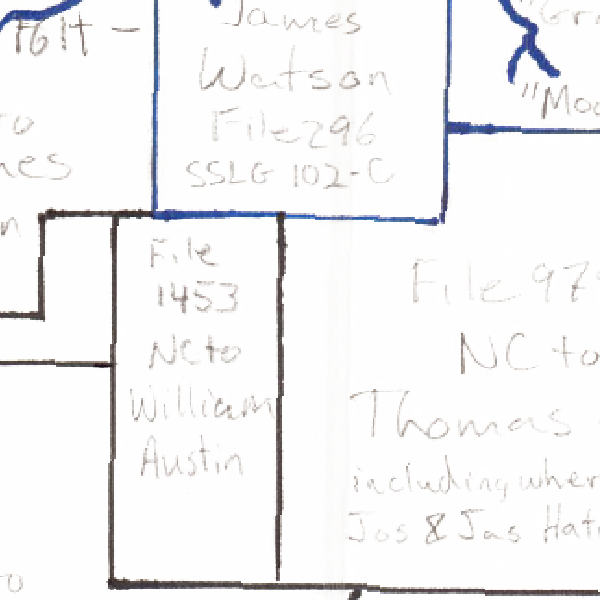 James
Watson
File 296
SSLG 102-C
File
1453
NC to
William
Austin
File 979
NC to
Thomas
including wher
Jos & Jas Hat